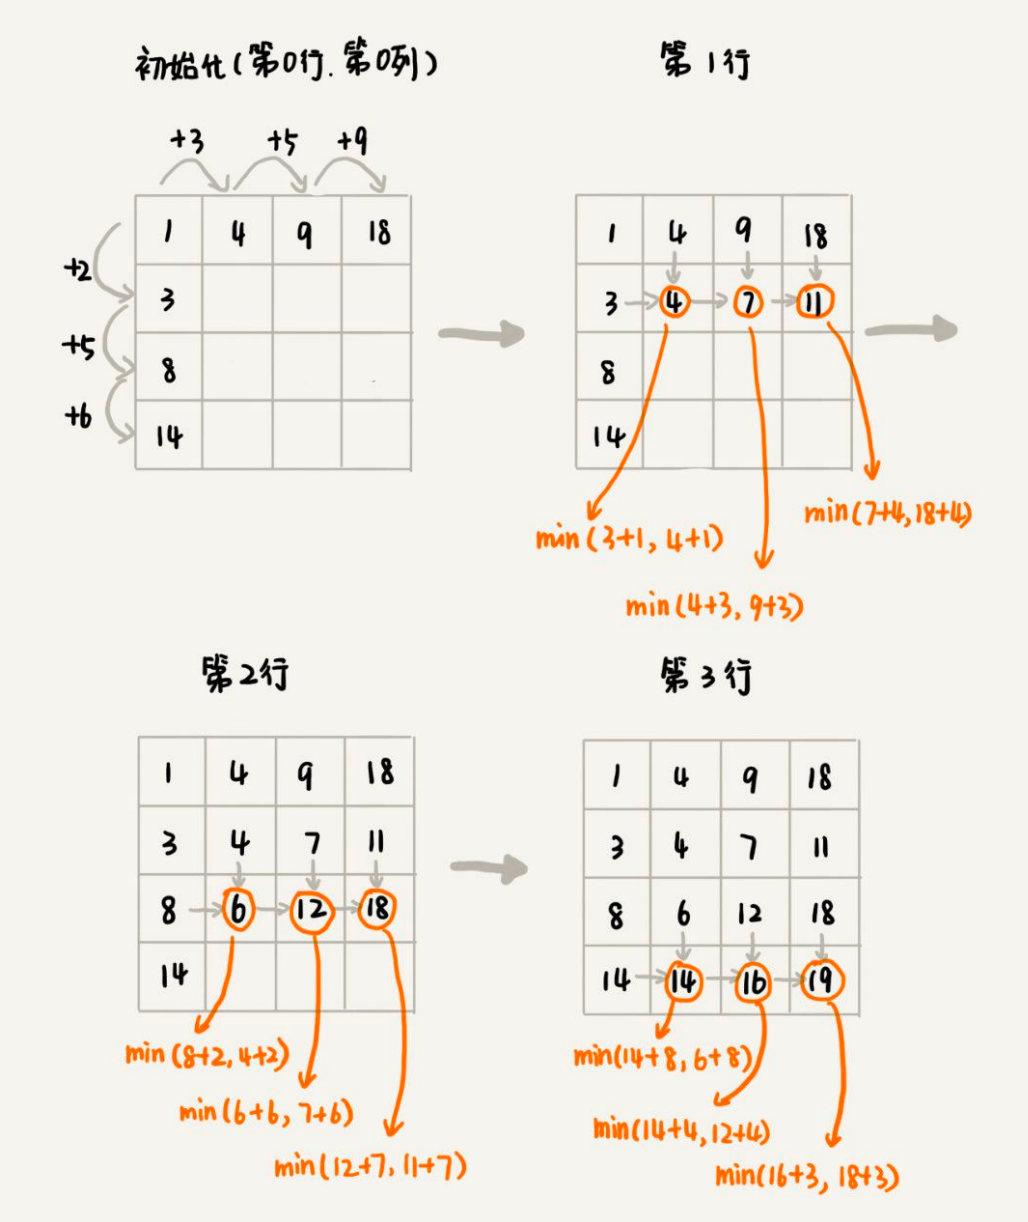 初始化(第0行.第0列)
+3 +5 +9
1 4 9 18
+2
3
+5
8
+6
14
第1行
1 4 9 18
3 4 7 11
8
14
min(3+1, 4+1)
min(4+3, 9+3)
min(7+4,18+4)
第2行
1 4 9 18
3 4 7 11
8 6 12 18
14
min(8+2, 4+2)
min(6+6, 7+6)
min(12+7, 11+7)
第3行
1 4 9 18
3 4 7 11
8 6 12 18
14 14 16 19
min(14+8, 6+8)
min(14+4,12+4)
min(16+3, 18+3)